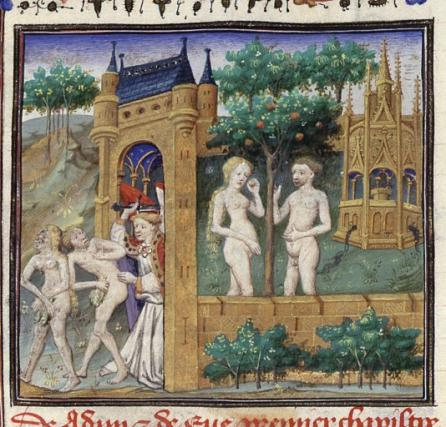 De Adam & de Eue premier chapistre